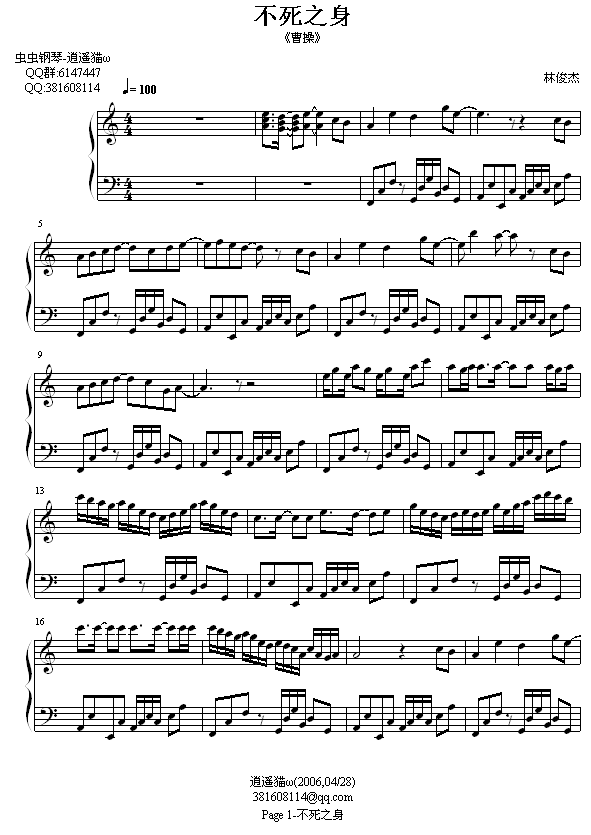 不死之身
《曹操》
虫虫钢琴-逍遥猫ω
QQ群:6147447
QQ:381608114
♩= 100
林俊杰
5
9
13
16
逍遥猫ω(2006,04/28)
381608114@qq.com
Page 1-不死之身